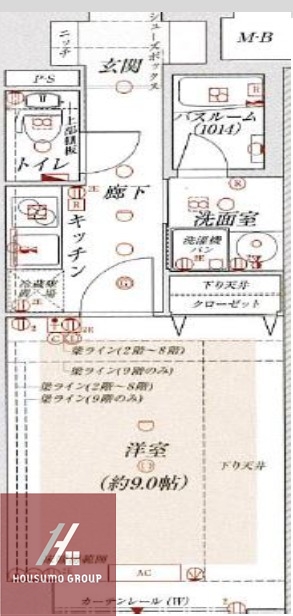 シューズボックス
ニッチ
玄関
M·B
P·S
上部棚板
トイレ
バスルーム
(1014)
廊下
キッチン
洗面室
洗濯機
パン
冷蔵庫
置場
下り天井
クローゼット
梁ライン(2階~8階)
梁ライン(9階のみ)
梁ライン(2階~8階)
梁ライン(9階のみ)
洋室
(約9.0帖)
下り天井
HOUSUMO GROUP
AC
カーテンレール(W)